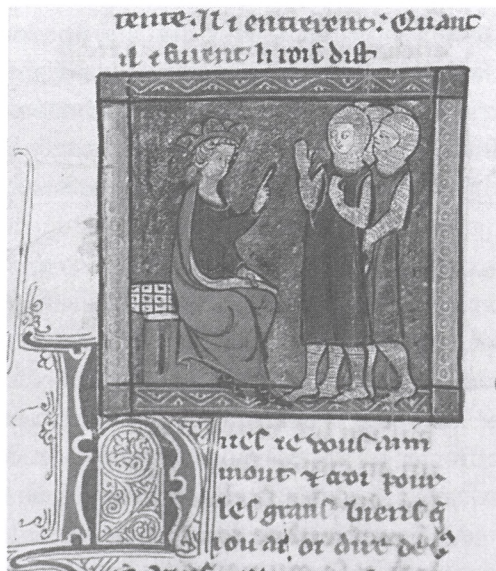 tente. Il i entrerent. Quant
il i furent li rois dist
nes ie vous aim
mout ⁊ croi pour
les grans biens q̄
ou ai, or dire de